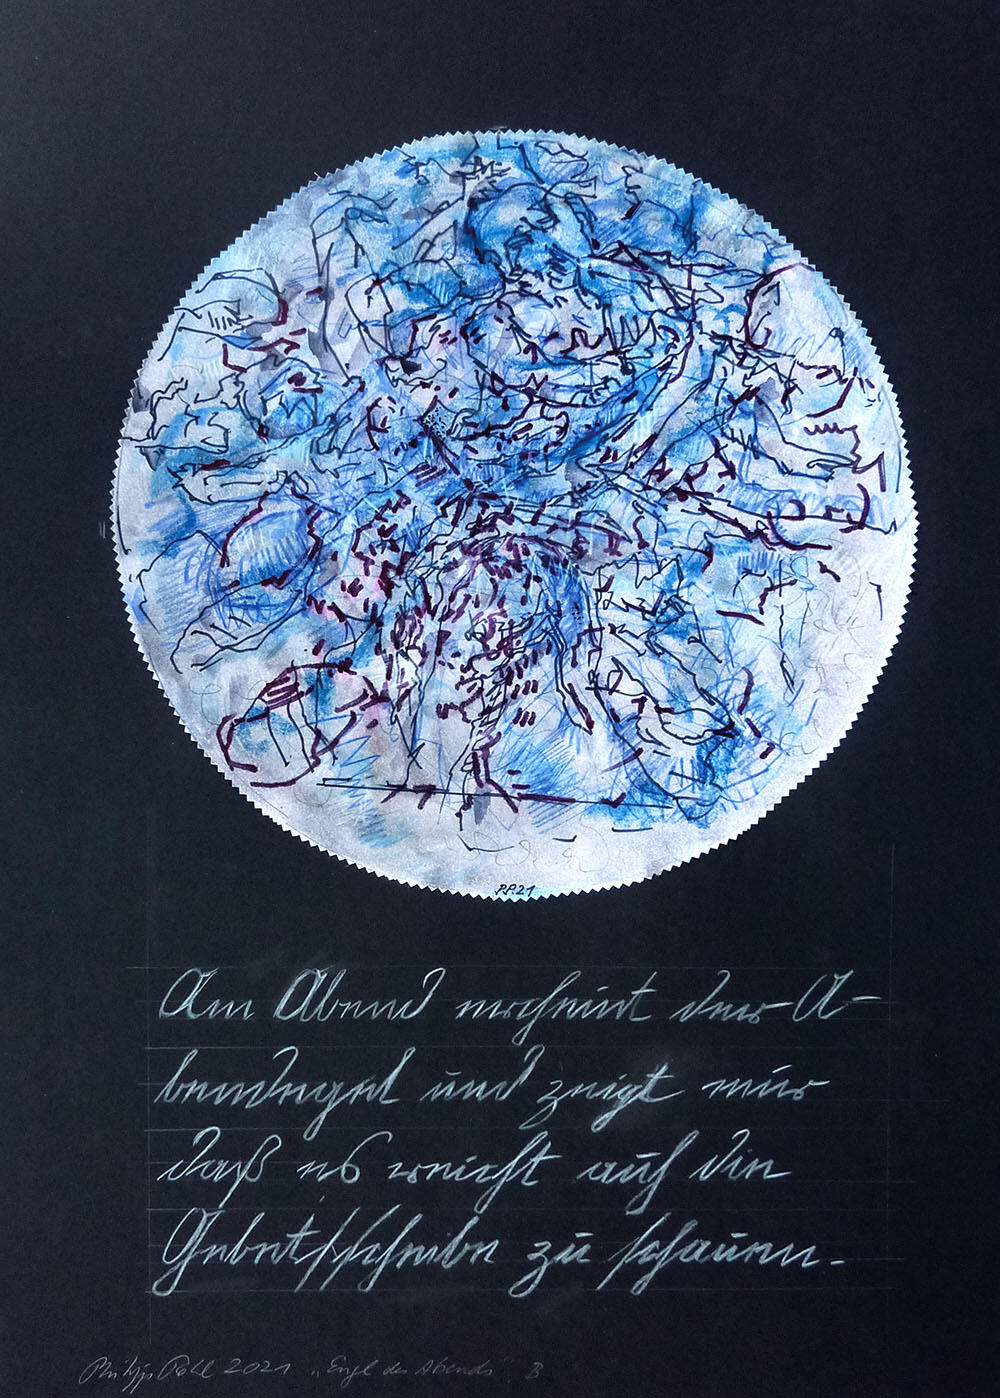 P.P.21
Am Abend erscheint der A-
bendengel und zeigt mir
daß es reicht auf die
Gebetsscheibe zu schauen.
Philipp 2021 „Engel des Abends" B